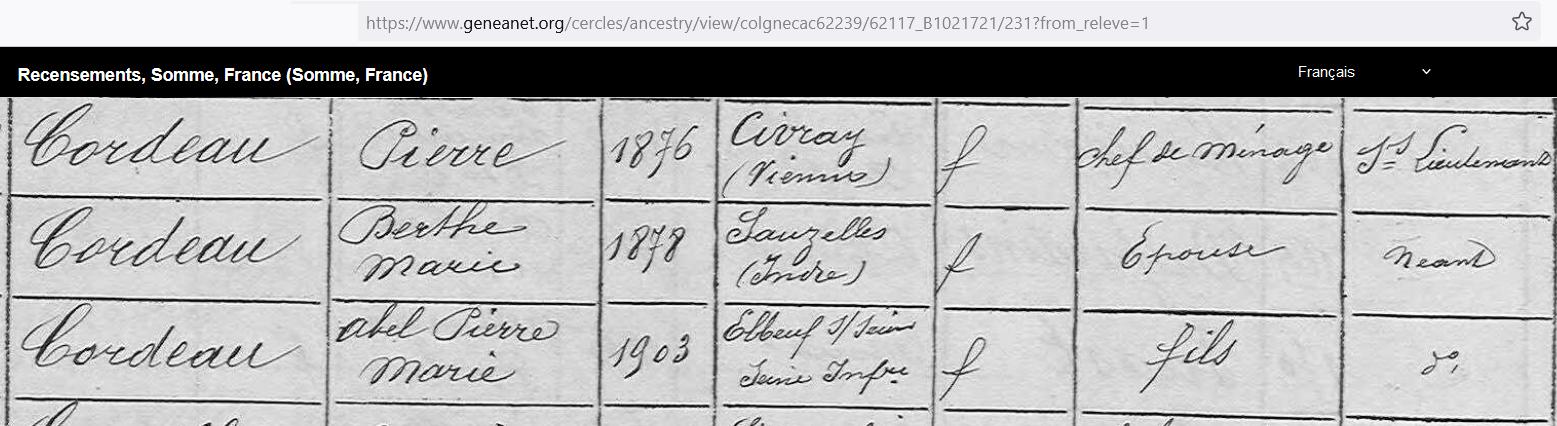 https://www.geneanet.org/cercles/ancestry/view/colgnecac62239/62117_B1021721/231?from_releve=1
Recensements, Somme, France (Somme, France)
Français
Cordeau Pierre 1876 Civray (Vienne) f chef de ménage Ss Lieutenant
Cordeau Berthe Marie 1878 Sauzelles (Indre) f Epouse neant
Cordeau abel Pierre Marie 1903 Elbeuf s/ Seine Seine Infre f fils do